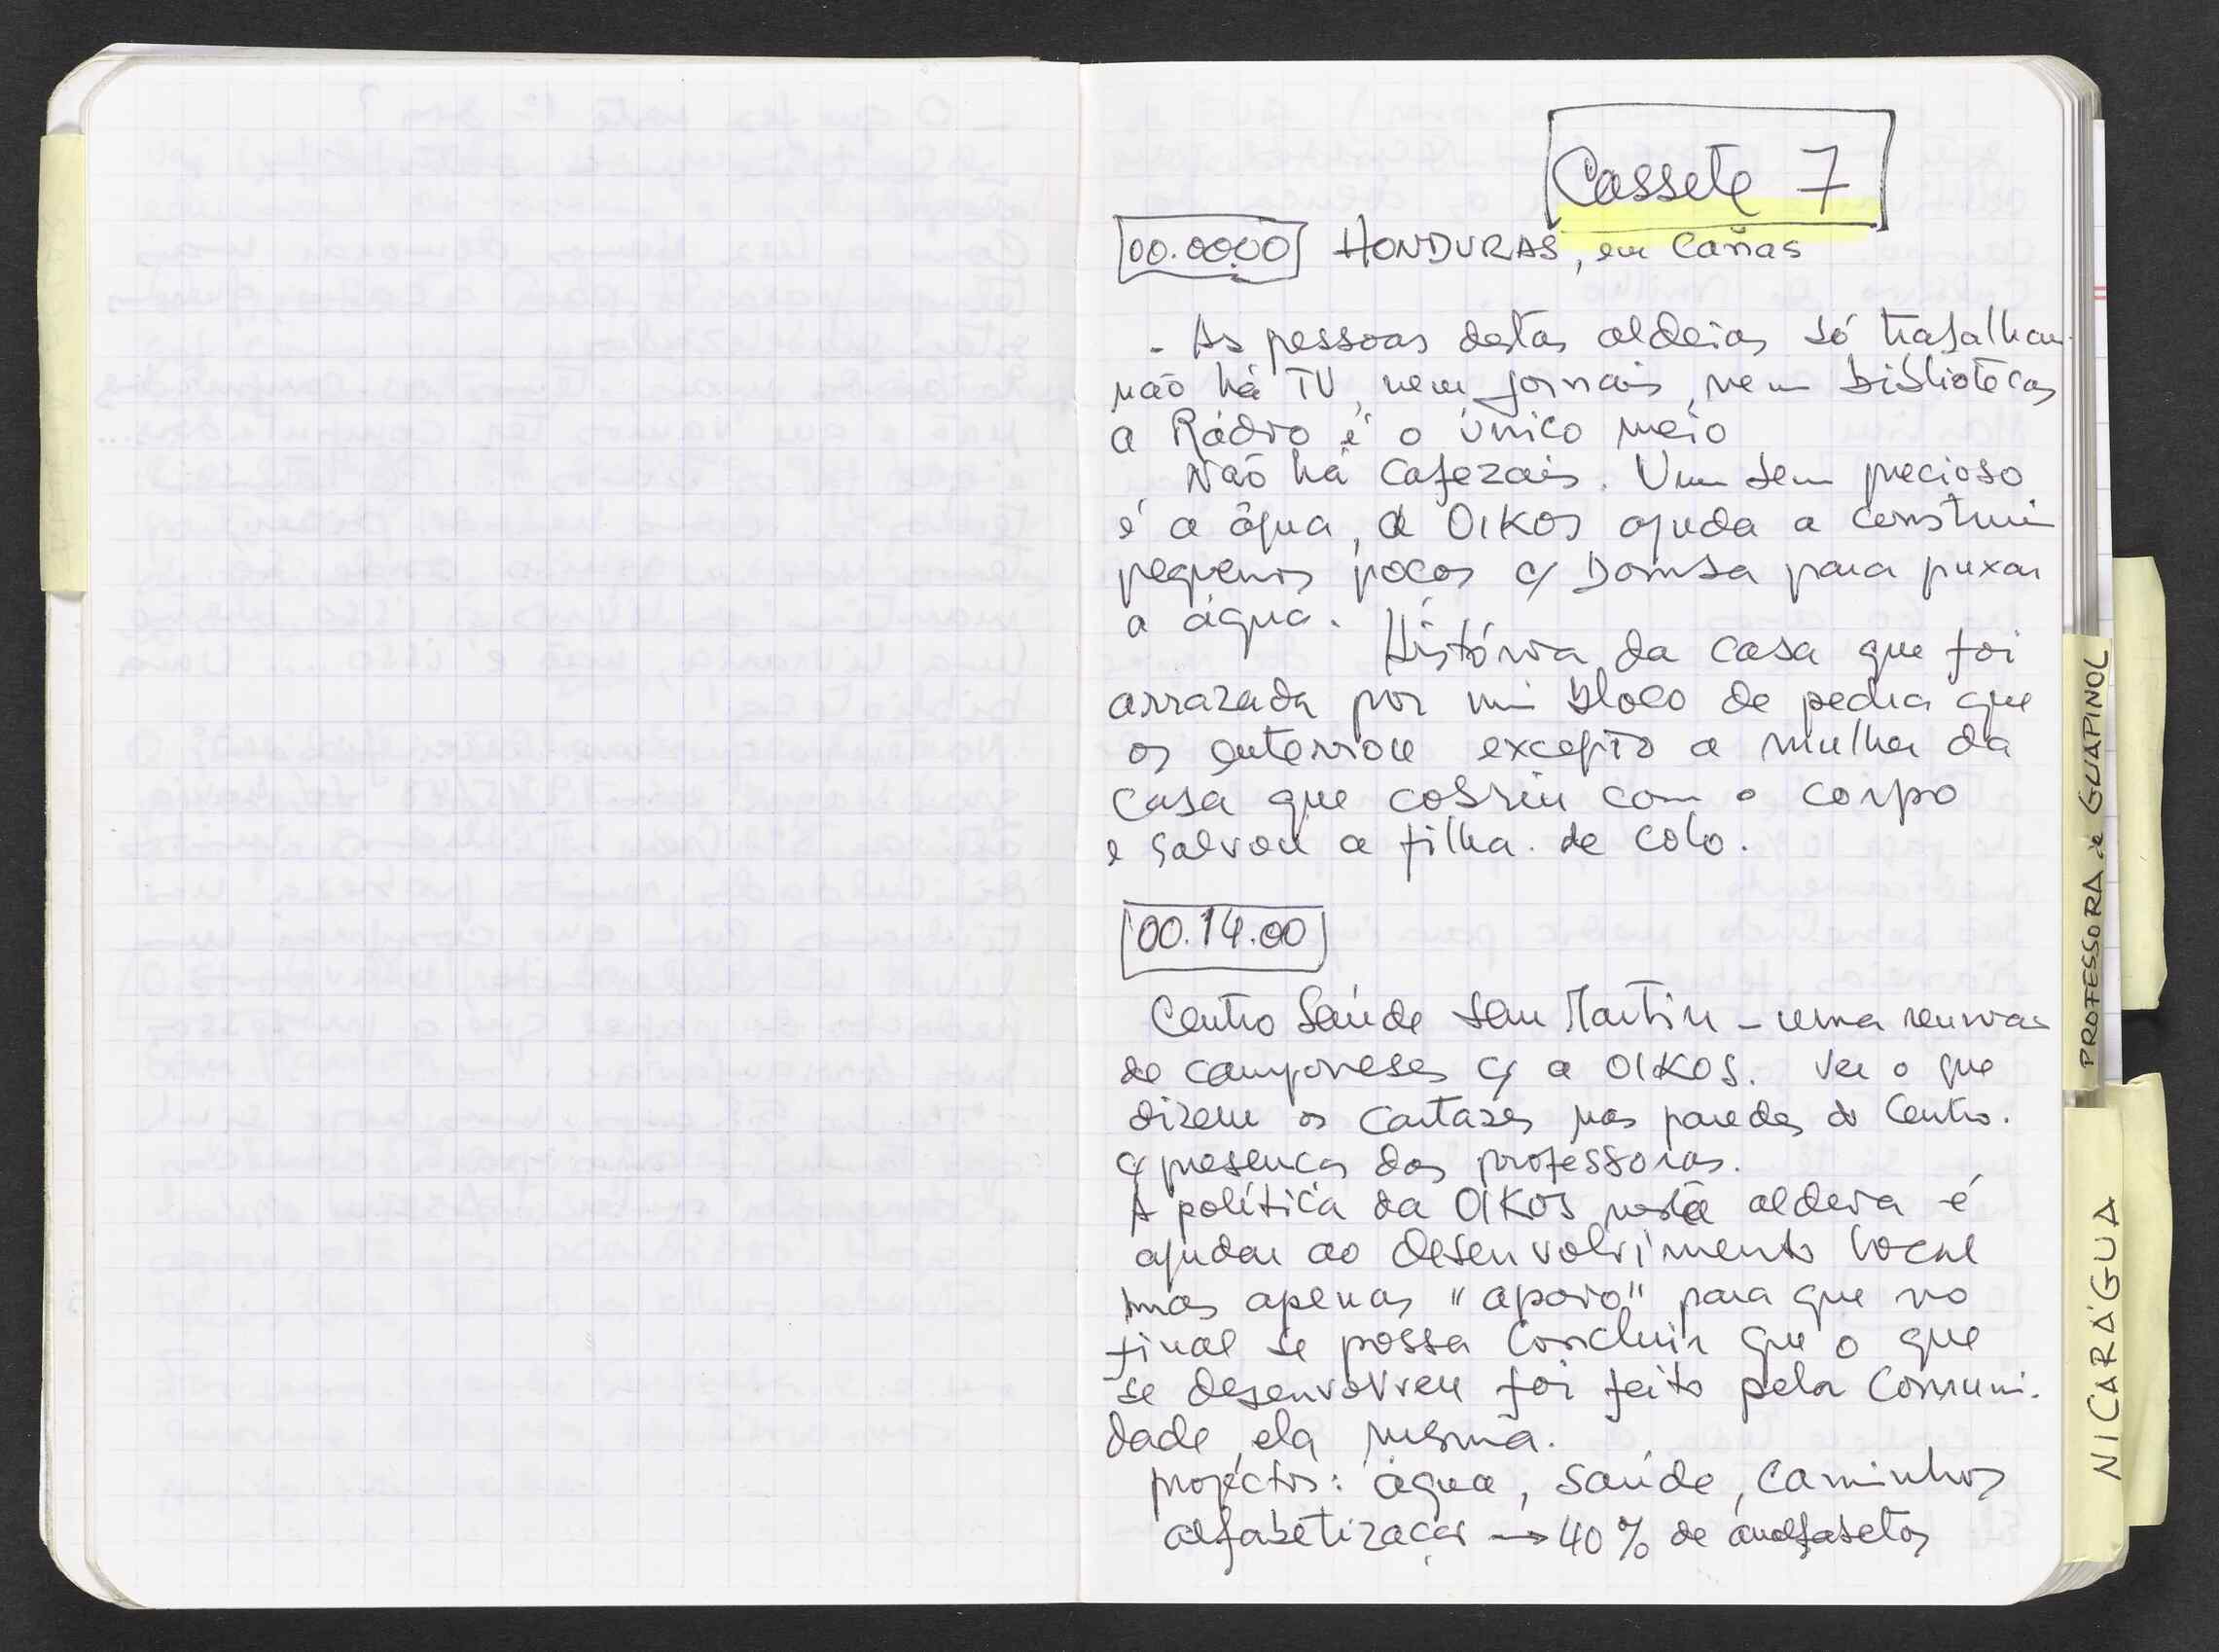 Cassete 7
00.00.00 HONDURAS, em Cañas
- As pessoas destas aldeias só trabalham
não há TV, nem jornais, nem bibliotecas
a Rádio é o único meio
Não há cafezais. Um bem precioso
é a água, a OIKOS ajuda a construir
pequenos poços c/ bomba para puxar
a água.
História da casa que foi
arrazada por um bloco de pedra que
os enterrou excepto a mulher da
casa que cobriu com o corpo
e salvou a filha de colo.
00.14.00
Centro Saúde San Martin - uma reunião
de camponeses c/ a OIKOS. Ver o que
dizem os cartazes nas paredes do Centro.
c/ presença das professoras.
A política da OIKOS nesta aldeia é
ajudar ao desenvolvimento local
mas apenas "apoio" para que no
final se possa concluir que o que
se desenvolveu foi feito pela comuni-
dade, ela mesma.
projectos: água, saúde, caminhos
alfabetização → 40% de analfabetos
PROFESSORA de GUAPINOL
NICARÁGUA